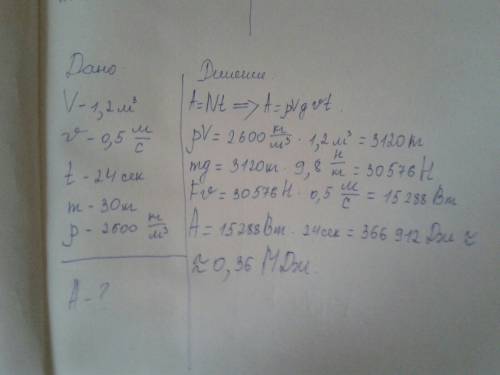 Дано
V - 1,2 м³
v - 0,5 м/с
t - 24 сек
m - 30 кг
p - 2600 кг/м³
A - ?
Решение.
A=Nt => A=pVgvt.
pV = 2600 кг/м³ · 1,2 м³ = 3120 кг
mg = 3120 кг · 9,8 Н/кг = 30576 Н
Fv = 30576 Н · 0,5 м/с = 15288 Вт
A = 15288 Вт · 24 сек = 366 912 Дж ≈
≈ 0,36 МДж.